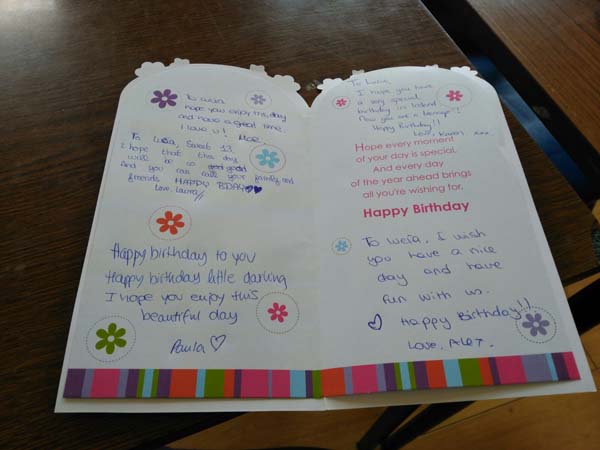 To Lucía
hope you enjoy this day
and have a great time.
I love u!
To Lucía, Sweet 13
I hope that this day
will be so good good
And you can call your family and
friends HAPPY BDAY
Love, Laura
Happy birthday to you
Happy birthday little darling
I hope you enjoy this
beautiful day
Paula
To Lucia,
I hope you have
a very special
birthday in Ireland.
Now you are a teenager!
Happy Birthday!!
Love, Karen xxx
Hope every moment
of your day is special,
And every day
of the year ahead brings
all you're wishing for.
Happy Birthday
To Lucía, I wish
you have a nice
day and have
fun with us.
Happy Birthday!!
Love,